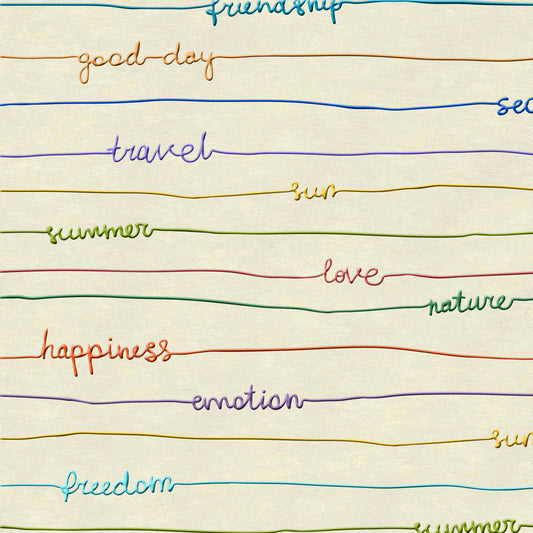 friendship
good day
sec
travel
sun
summer
love
nature
happiness
emotion
sun
freedom
summer